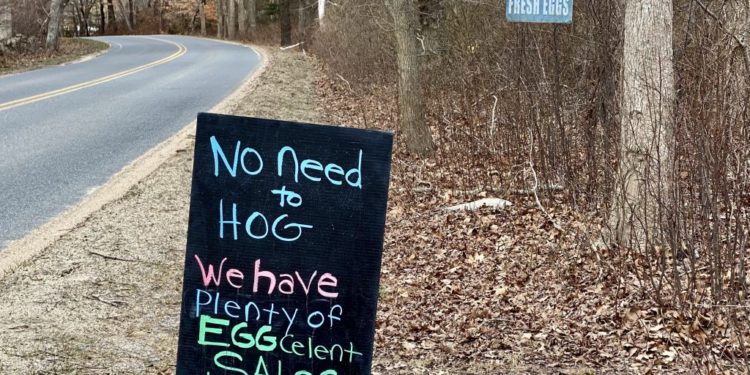 FRESH EGGS
No Need
to
HOG
We have
Plenty of
EGGcelent